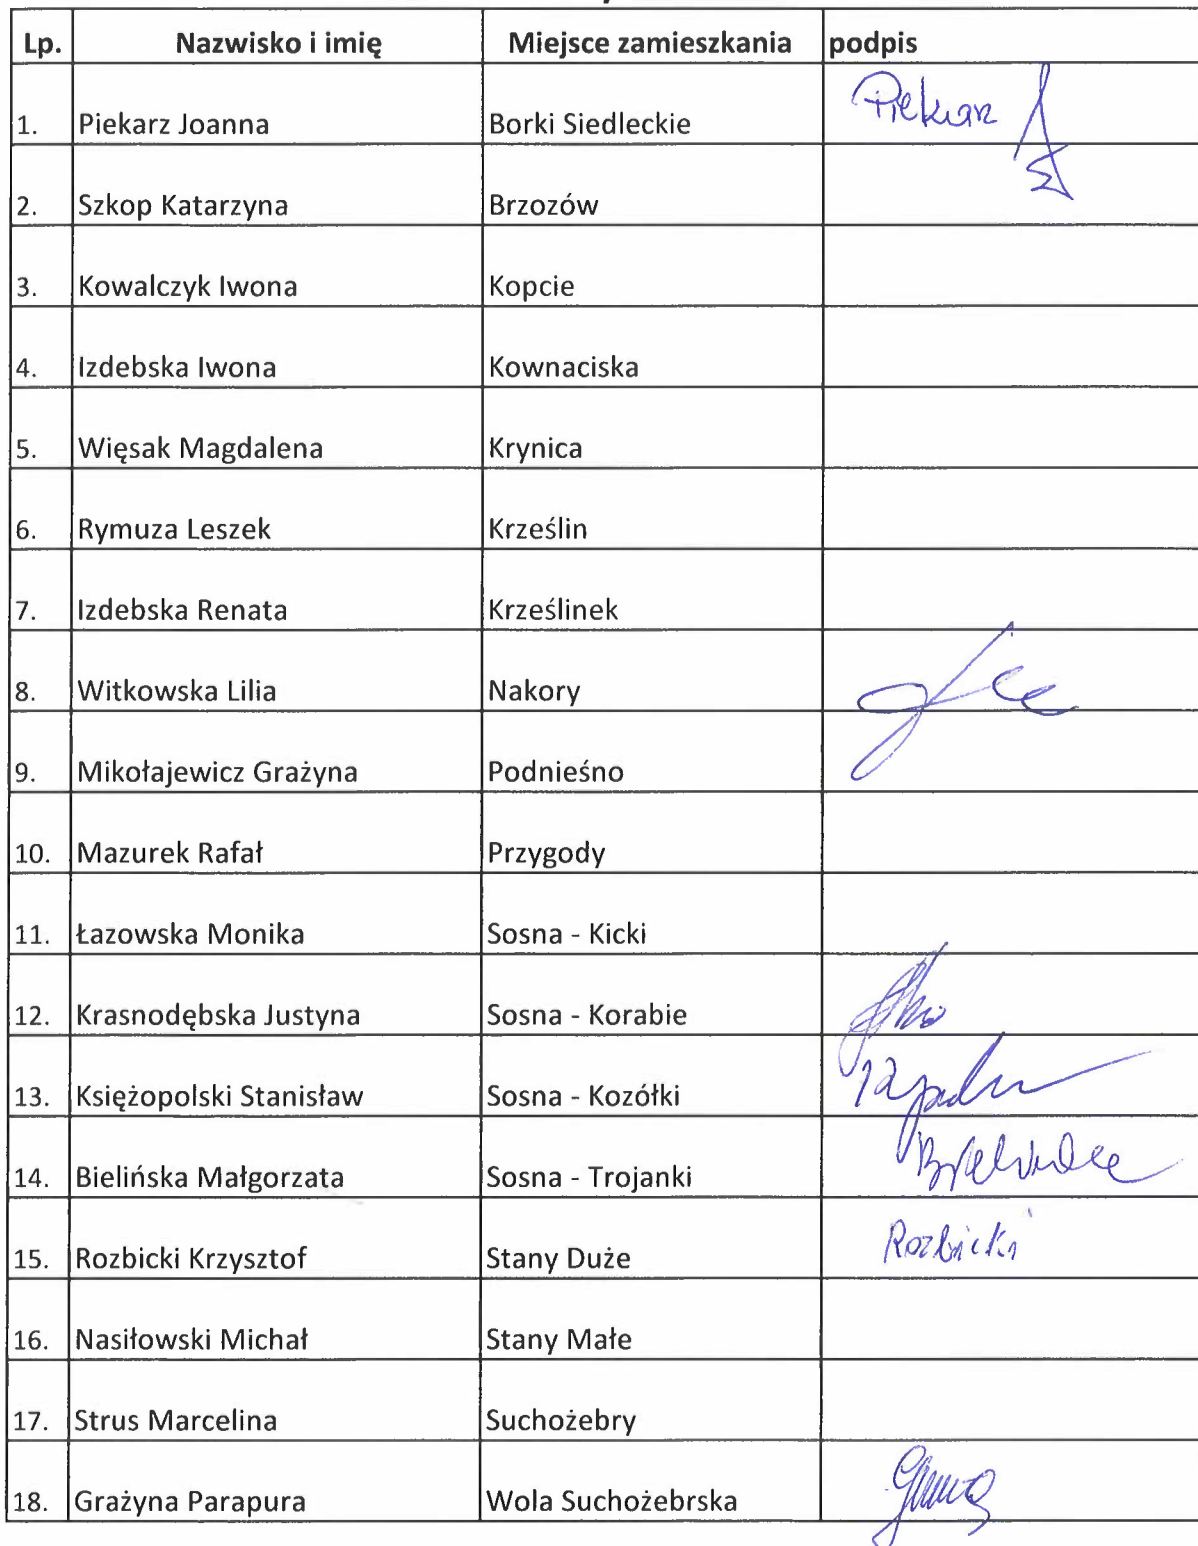 Lp. Nazwisko i imię Miejsce zamieszkania podpis
1. Piekarz Joanna Borki Siedleckie Piekarz
2. Szkop Katarzyna Brzozów
3. Kowalczyk Iwona Kopcie
4. Izdebska Iwona Kownaciska
5. Więsak Magdalena Krynica
6. Rymuza Leszek Krześlin
7. Izdebska Renata Krześlinek
8. Witkowska Lilia Nakory
9. Mikołajewicz Grażyna Podnieśno
10. Mazurek Rafał Przygody
11. Łazowska Monika Sosna - Kicki
12. Krasnodębska Justyna Sosna - Korabie
13. Księżopolski Stanisław Sosna - Kozółki
14. Bielińska Małgorzata Sosna - Trojanki
15. Rozbicki Krzysztof Stany Duże Rozbicki
16. Nasiłowski Michał Stany Małe
17. Strus Marcelina Suchożebry
18. Grażyna Parapura Wola Suchożebrska